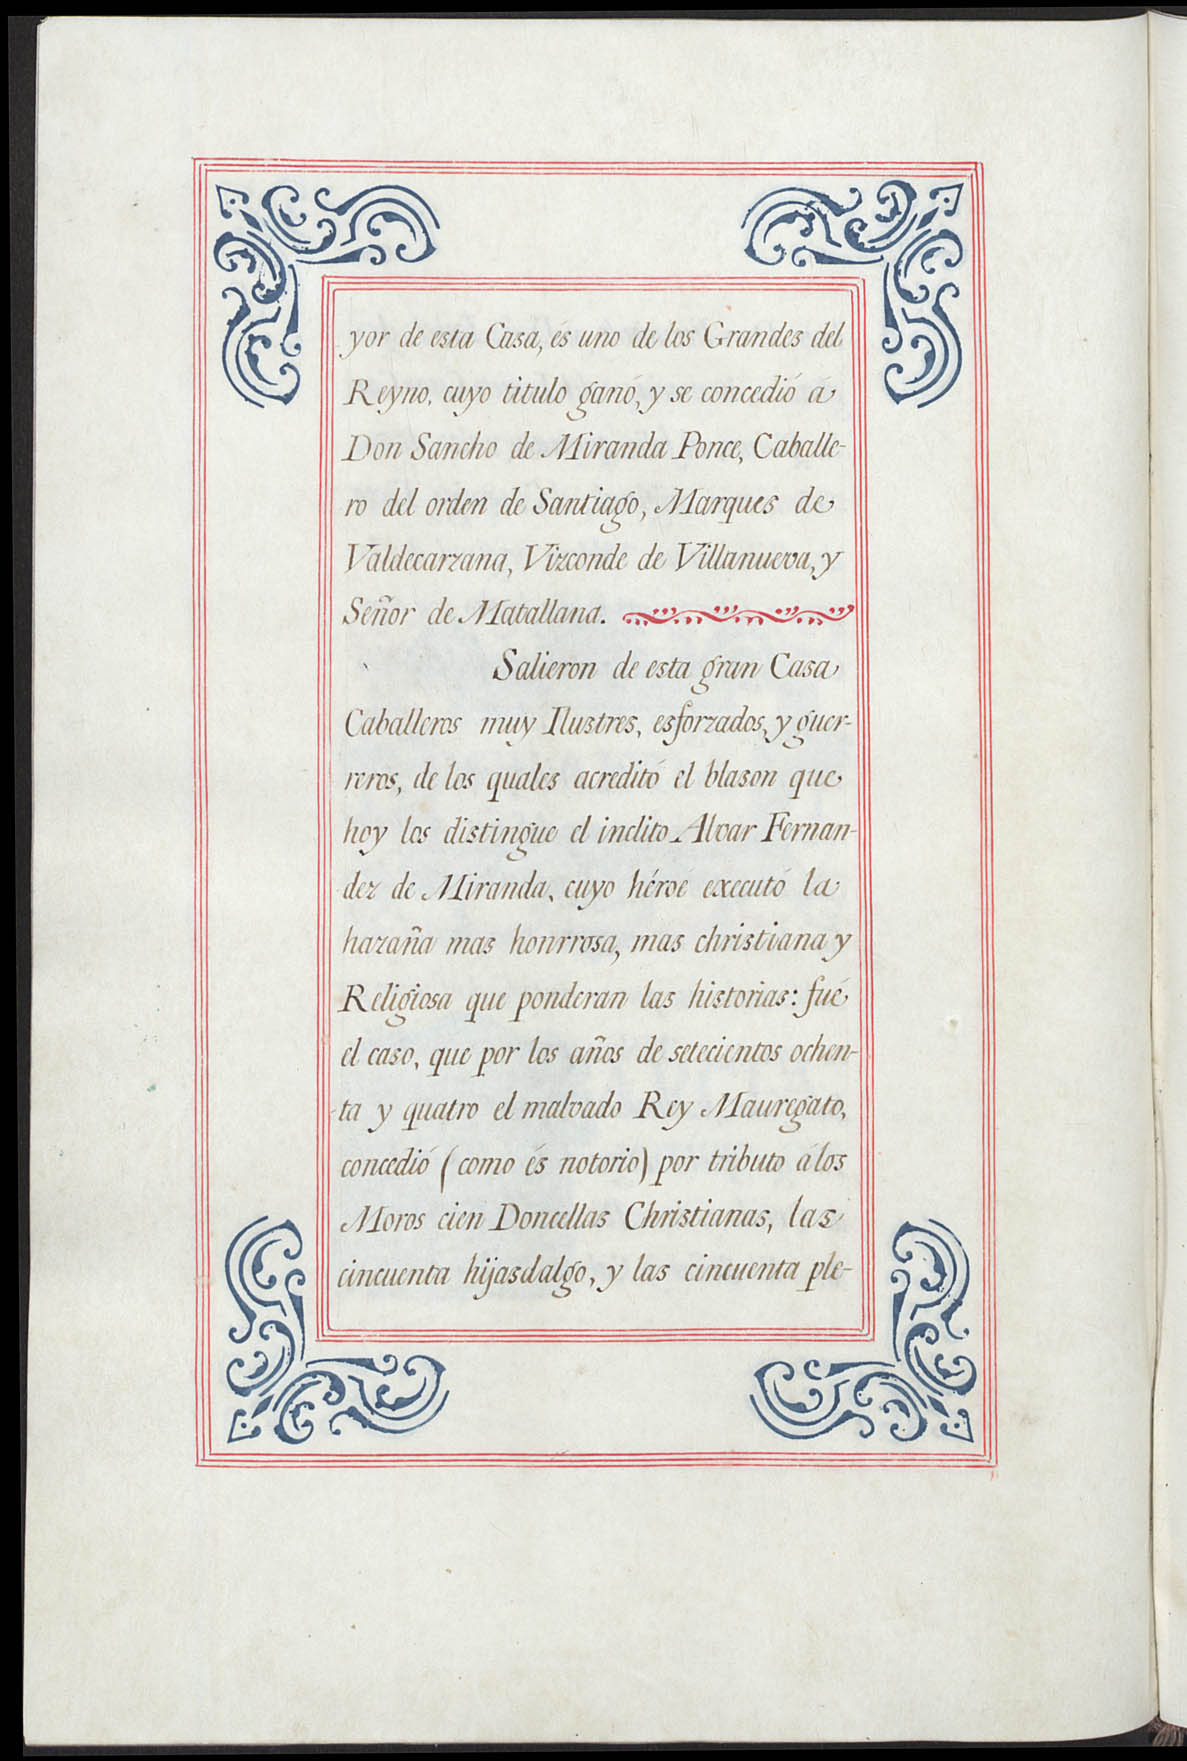 yor de esta Casa, és uno de los Grandes del
Reyno, cuyo titulo ganó, y se concedió á
Don Sancho de Miranda Ponce, Caballe-
ro del orden de Santiago, Marques de
Valdecarzana, Vizconde de Villanueva, y
Señor de Matallana.
Salieron de esta gran Casa
Caballeros muy Ilustres, esforzados, y guer-
reros, de los quales acreditó el blason que
hoy los distingue el inclito Alvar Fernan-
dez de Miranda, cuyo héroe executó la
hazaña mas honrrosa, mas christiana y
Religiosa que ponderan las historias: fué
el caso, que por los años de setecientos ochen-
ta y quatro el malvado Rey Mauregato,
concedió (como és notorio) por tributo á los
Moros cien Doncellas Christianas, las
cincuenta hijasdalgo, y las cincuenta ple-